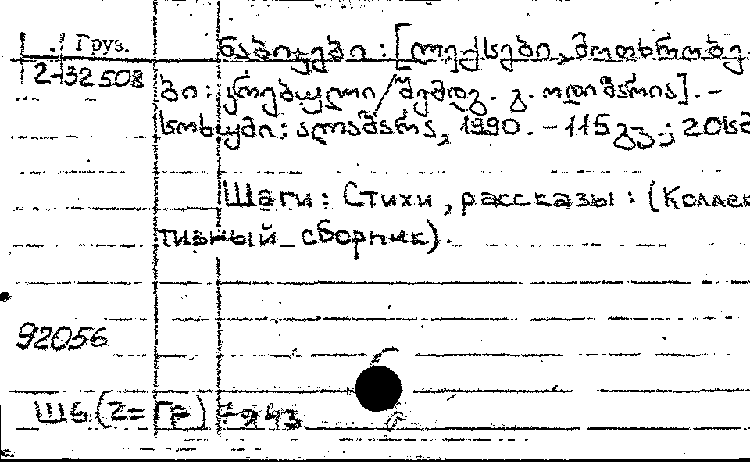 Груз.
ნაბიჯები : [ლექსები, მოთხრობე
2-32508
ბი : კრებული / შემდგ. გ. ოდიშარია]. –
სოხუმი : ალაშარა, 1990. – 115 გვ. ; 20სმ
Шаги : Стихи, рассказы : (Коллек
тивный сборник).
92056
Ш6(2=Гр)